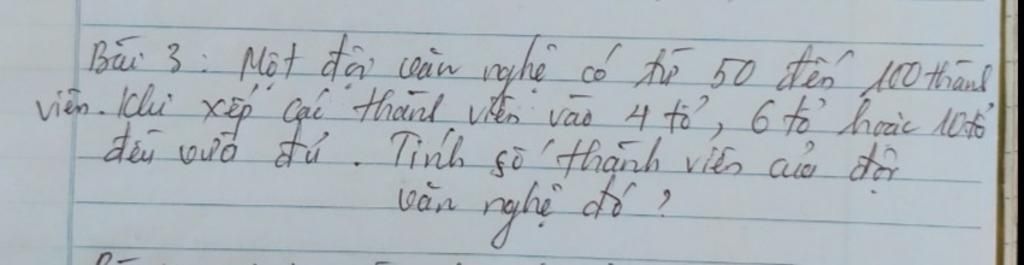 Bài 3: Một đội văn nghệ có từ 50 đến 100 thành
viên. Khi xếp các thành viên vào 4 tổ, 6 tổ hoặc 10 tổ
đều vừa đủ. Tính số thành viên của đội
văn nghệ đó?